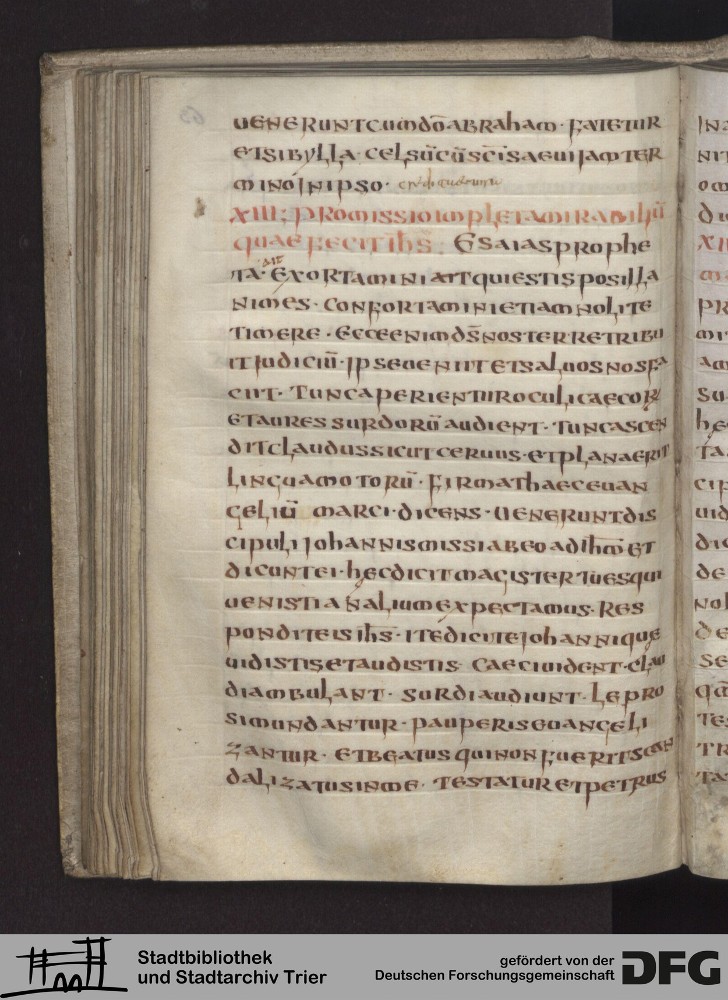 uenerunt cum dõ abraham · fatetur
et sibylla · celsũ cũ scis aeui iam ter
mino in ipso ·
XIII: promissio impleta mirabiliũ
quae fecit ihs̄: Esaias prophe
ta · ait Exortamini ait qui estis posilla
nimes · confortamini etiam nolite
timere · ecce enim ds̄ noster retribu
it iudiciũ · ipse uenit et saluos nos fa
ciit · tunc aperientur oculi caecor
et aures surdorũ audient · tunc ascen
dit claudus sicut ceruus · et plana erit
lingua motorũ · firmat haec euan
geliũ marci · dicens · uenerunt dis
cipuli iohannis missi ab eo ad ihm̄ et
dicunt ei · hec dicit magister tu es qui
uenisti an alium expectamus · res
pondit eis ihs̄ · ite dicite iohanni que
uidistis et audistis · caeci uident · clau
di ambulant · surdi audiunt · lepro
si mundantur · pauperis euangeli
zantur · et beatus qui non fuerit scan
dalizatus in me · testatur et petrus
63
Stadtbibliothek
und Stadtarchiv Trier
gefördert von der
Deutschen Forschungsgemeinschaft
DFG